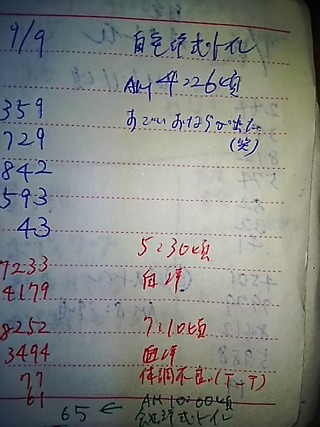 9/9 自宅洋式トイレ
AM 4:26頃
359 すごいおならが出た
729 (笑)
842
593
43
5:30頃
7233 自洋
4179
8252 7:10頃
3494 自洋
77 体調不良(T-T)
61 AM 10:00頃
65 ← 会社洋式トイレ